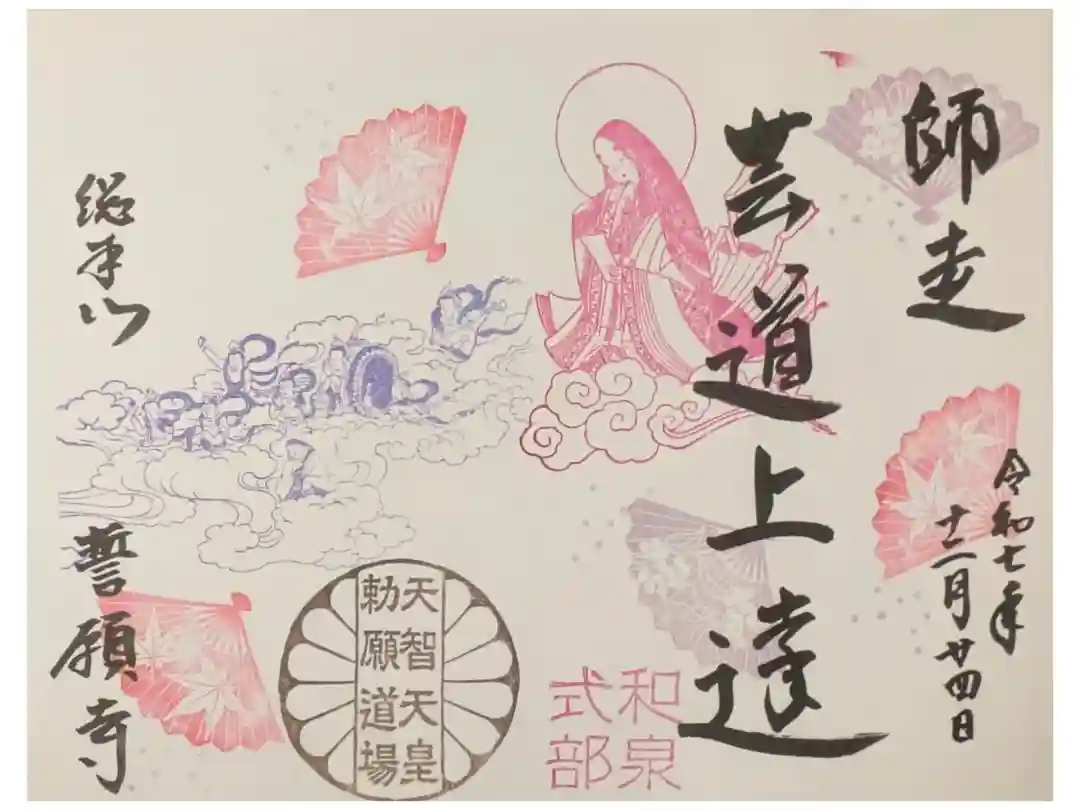 師走
令和七年
十二月廿四日
芸道上達
和泉
式部
天智天皇
勅願道場
総本山
誓願寺